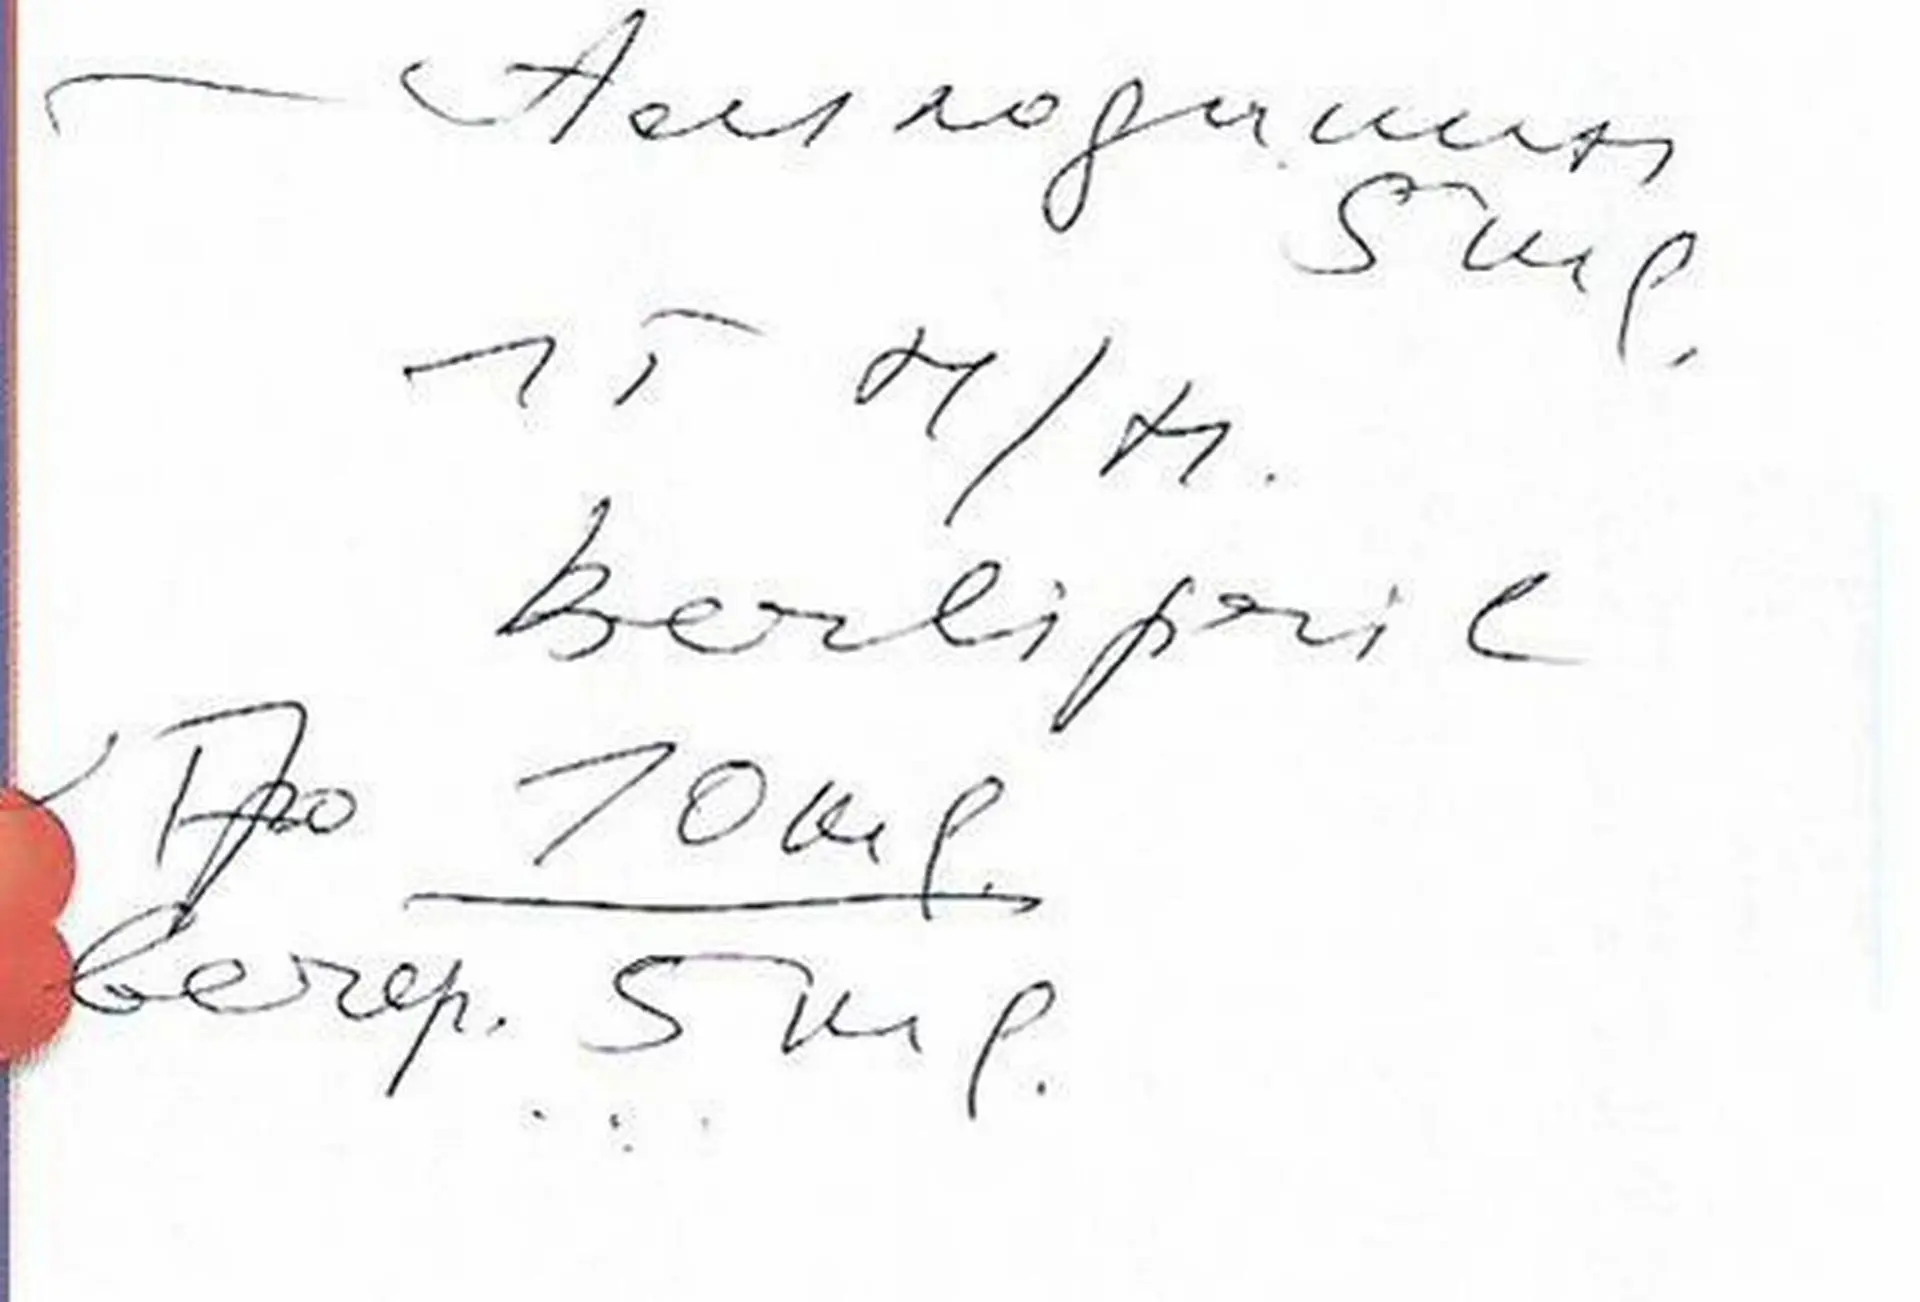 — Амлодипин
5 мг.
1т н/н.
Berlipril
10 мг.
вечер. 5 мг.